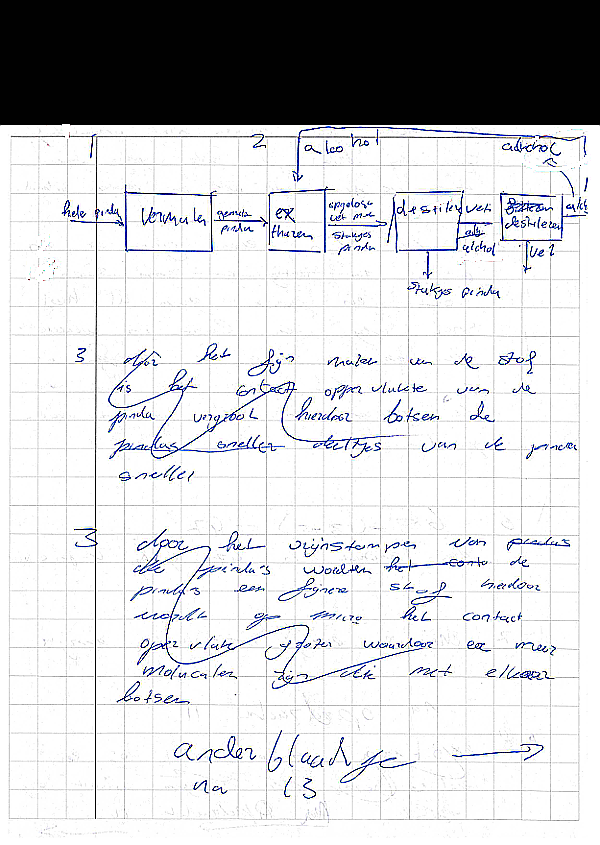 1 2 alcohol alcohol
hele pinda vermalen gemale pinda ex traheren opgelost vet met stukjes pinda destileren vet alcohol destileren alco
vet
stukjes pinda
3 door het fijn malen van de stof
is het contact opper vlakte van de
pinda vergroot hierdoor botsen de
pindas sneller deeltjes van de pinda
sneller
3 door het vijnstampen van pindas
die pinda's woorden het conta de
pindas een fijnere stof hierdoor
wordt het contact
oper vlak groter waardoor eer meer
moluculen zijn die met elkaar
botsen
ander blaadje
na 13